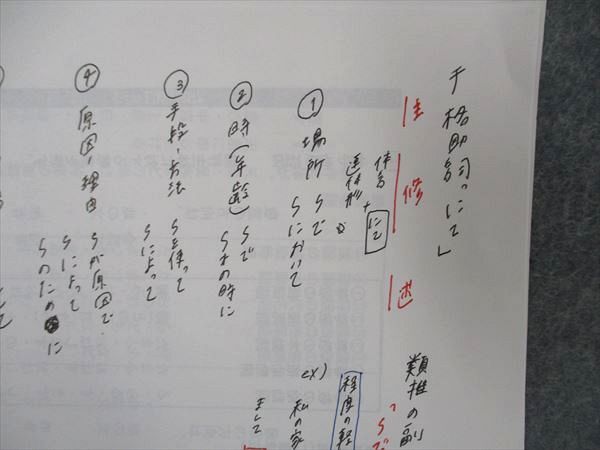 格助詞「にて」
主 修 述
体言
連体形
+
にて
① 場所 〜で
〜において
② 時(年齢) 〜で
〜その時に
③ 手段・方法 〜を使って
〜によって
④ 原因・理由 〜が原因で
〜によって
〜のために
類推の副
「〜で
程度の軽
ex) 私の家
まして